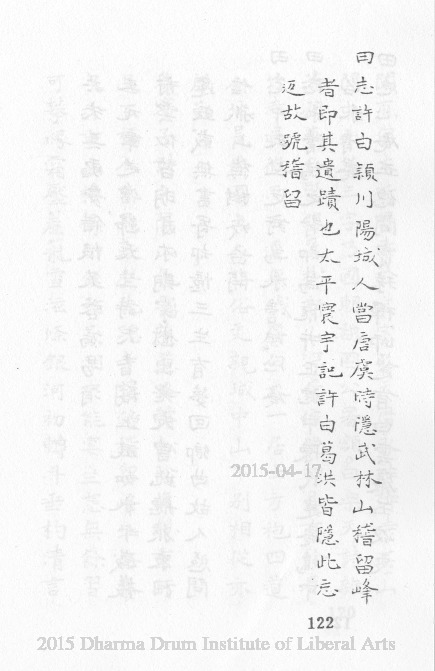 田志許白穎川陽城人當唐虞時隱武林山稽留峰
者即其遺蹟也太平寰宇記許白葛洪皆隱此忘
返故號稽留
2015-04-17
122
2015 Dharma Drum Institute of Liberal Arts